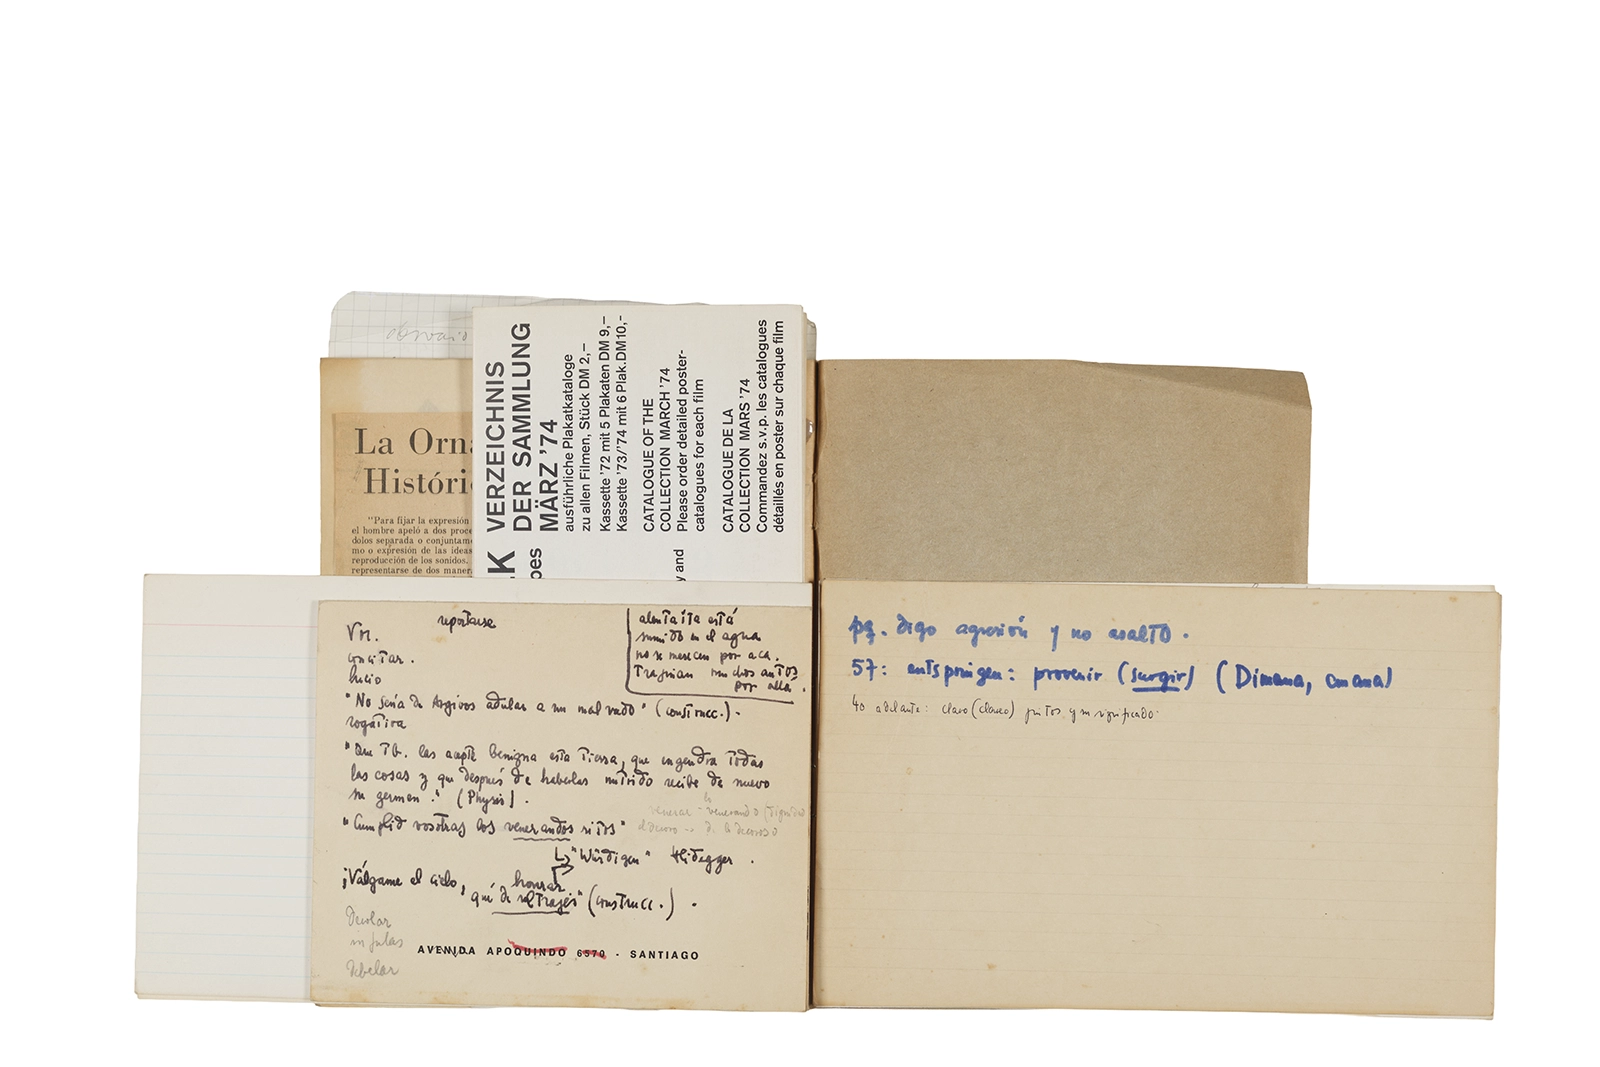 La Orn
Históri
"Para fijar la expresión
el hombre apeló a dos proce
dolos separada o conjuntame
mo o expresión de las ideas
reproducción de los sonidos.
representarse de dos maner
K VERZEICHNIS
DER SAMMLUNG
MÄRZ '74
ausführliche Plakatkataloge
zu allen Filmen, Stück DM 2,–
Kassette '72 mit 5 Plakaten DM 9,–
Kassette '73/'74 mit 6 Plak.DM10,–
CATALOGUE OF THE
COLLECTION MARCH '74
Please order detailed poster-
catalogues for each film
CATALOGUE DE LA
COLLECTION MARS '74
Commandez s.v.p. les catalogues
détaillés en poster sur chaque film
pes
y and
reportarse
Vm.
concitar.
alentaíta está
sumido en el agua
no se merecen por aca.
Trajinan muchos autos
por allá.
"No sería de Argivos adular a un malvado" (construcc.).
rogativa
"Que Tb. las acepte benigna esta Tierra, que engendra todas
las cosas y que después de haberlas nutrido recibe de nuevo
su germen." (Physis).
venerar - venerando
el decoro → de lo decoroso
"Cumplid vosotras los venerandos ritos"
↳ "Würdigen" Heidegger.
honrar
¡Válgame el cielo, qué de ultrajes" (construcc.).
debelar
AVENIDA APOQUINDO 6570 - SANTIAGO
pg. digo agresión y no asalto.
57: entspringen: provenir (surgir) (Dimana, emana)
40 adelante: clavo (claveo) juntos y su significado.